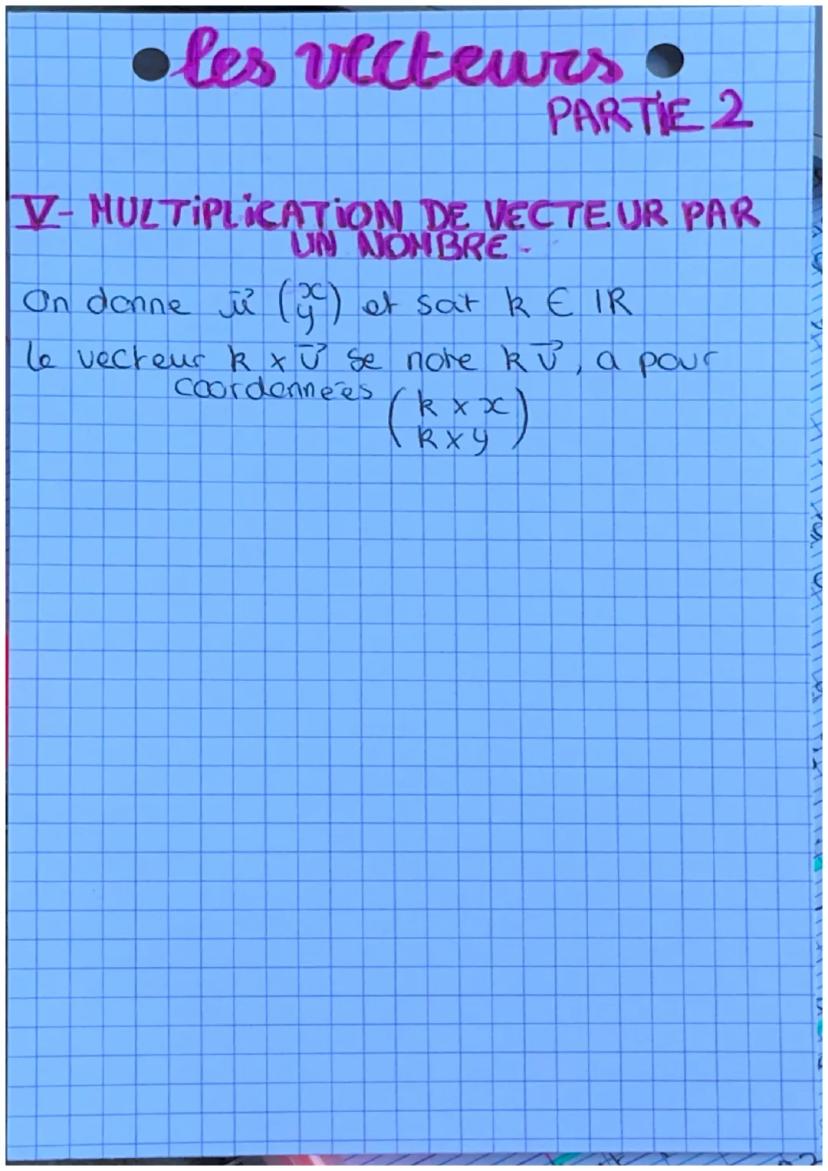 les vecteurs
PARTIE 2
V- MULTIPLICATION DE VECTEUR PAR
UN NOMBRE.
On donne u⃗ (x y) et soit k ∈ IR
le vecteur k x u⃗ se note k u⃗, a pour
coordonnées (k x x
k x y)